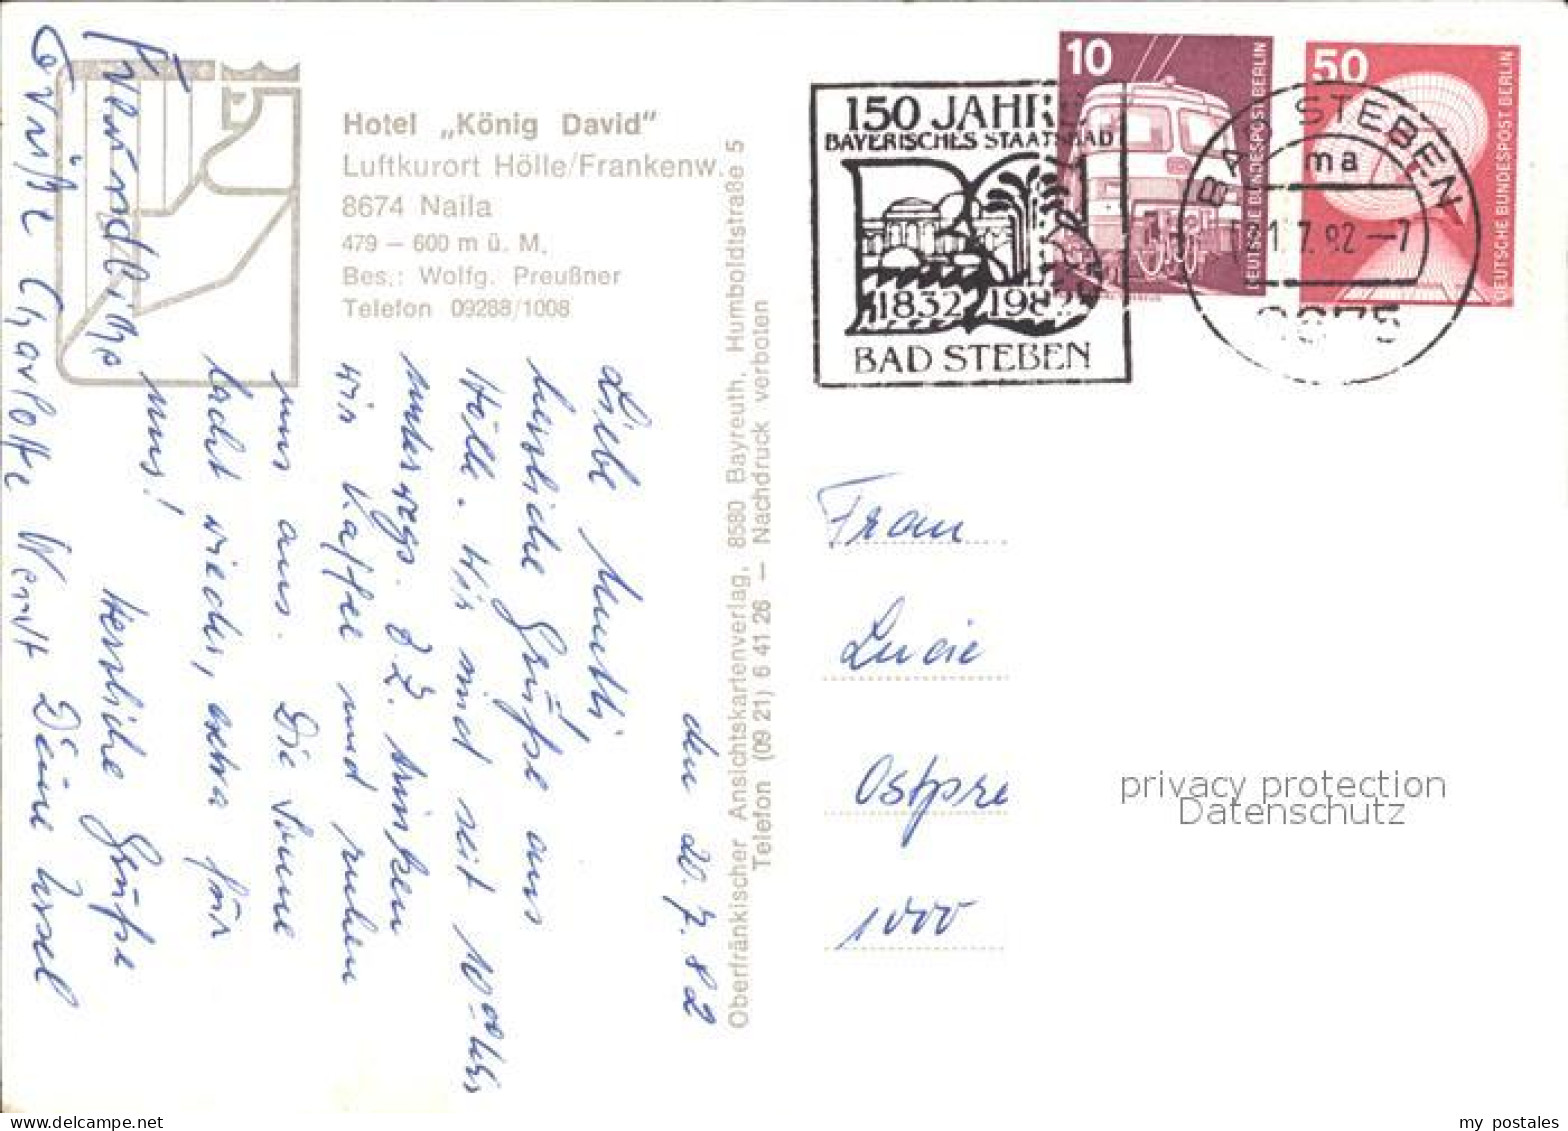 Hotel „König David"
Luftkurort Hölle/Frankenw.
8674 Naila
479 – 600 m ü. M.
Bes.: Wolfg. Preußner
Telefon 09288/1008
den 20.7.82
Liebe Mutti,
herzliche Grüße aus
Hölle. Wir sind seit 10⁰⁰ Uhr
unterwegs. Z.Z. trinken
wir Kaffee und ruhen
uns aus. Die Sonne
lacht wieder, extra für
uns!
Herzliche Grüße
Deine Ursel
Freundliche
Grüße Charlotte Werst
Oberfränkischer Ansichtskartenverlag, 8580 Bayreuth, Humboldtstraße 5
Telefon (09 21) 6 41 26 – Nachdruck verboten
150 JAHRE
BAYERISCHES STAATSBAD
1832 1982
BAD STEBEN
10
DEUTSCHE BUNDESPOST BERLIN
50
DEUTSCHE BUNDESPOST BERLIN
BAD STEBEN
ma
21.7.82 –7
8675
Frau
Lucie
Ostpre
1000
privacy protection
Datenschutz
my postales